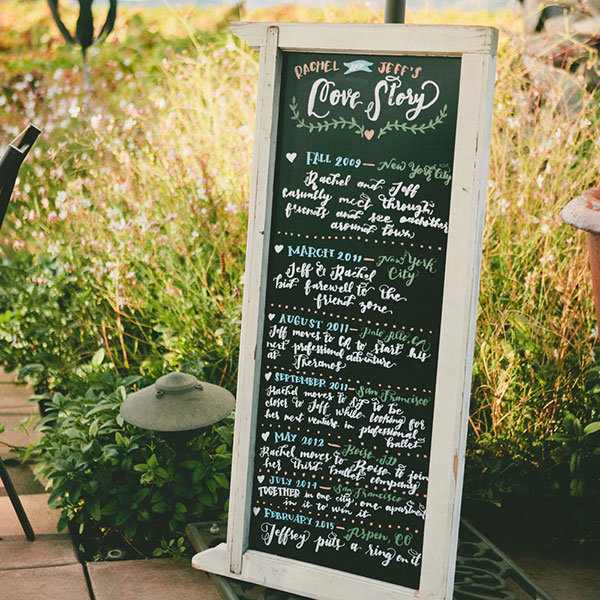 RACHEL AND JEFF'S
Love Story
FALL 2009 — New York City
Rachel and Jeff
casually meet through
friends and see eachother
around town
MARCH 2011 — New York
City
Jeff & Rachel
bid farewell to the
friend zone
AUGUST 2011 — Palo Alto, CA
Jeff moves to CA to start his
next professional adventure
at Theranos
SEPTEMBER 2011 — San Francisco
Rachel moves to SF to be
closer to Jeff while looking for
her next venture in professional
ballet
MAY 2012 — Boise, ID
Rachel moves to Boise to join
her third ballet company
JULY 2014 — San Francisco
TOGETHER in one city, one apartment
in it to win it
FEBRUARY 2015 — Aspen, CO
Jeffrey puts a ring on it